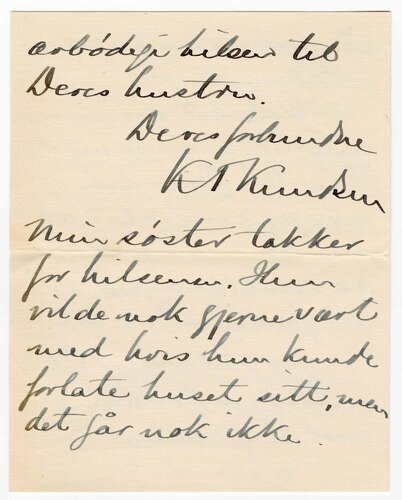 ærbødige hilsen til
Deres hustru.
Deres forbundne
K Knudsen
Min søster takker
for hilsenen. Hun
vilde nok gjerne vært
med hvis hun kunde
forlate huset sitt, men
det går nok ikke.